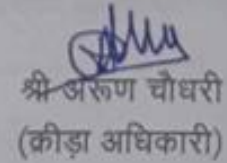 श्री अरूण चौधरी
(क्रीड़ा अधिकारी)